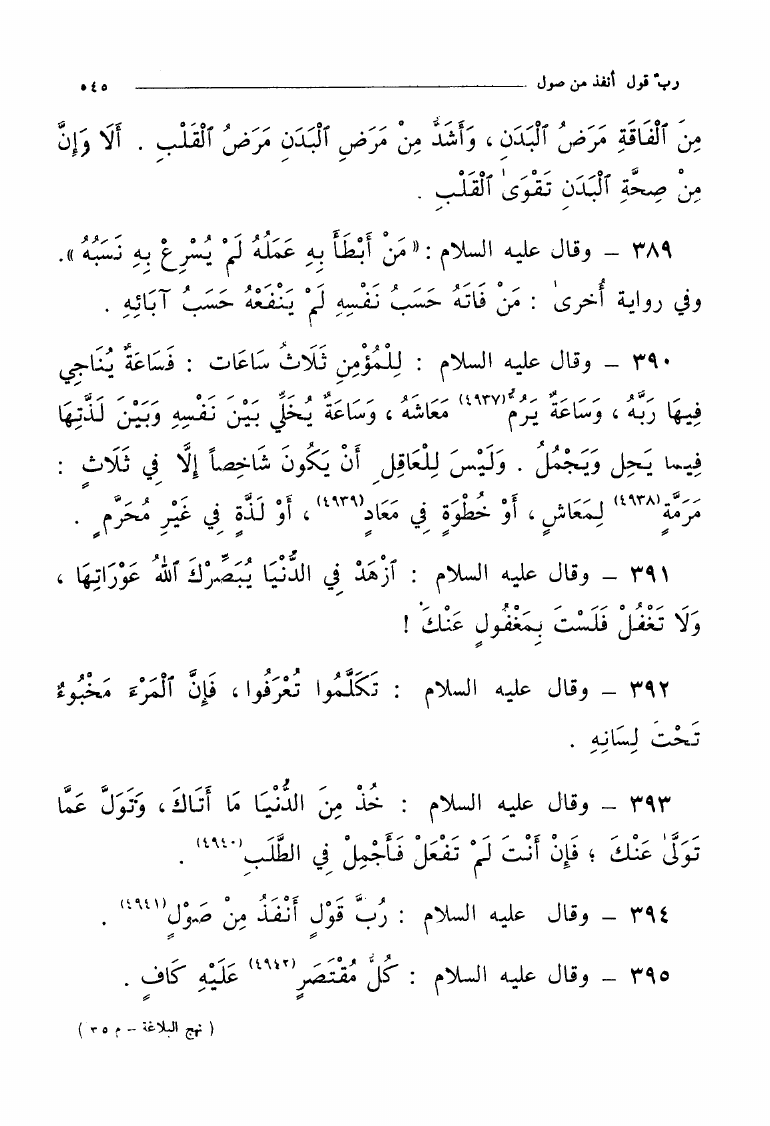 رب قول أنفذ من صول ــــــــــ ٥٤٥
مِنَ ٱلْفَاقَةِ مَرَضُ ٱلْبَدَنِ ، وَأَشَدُّ مِنْ مَرَضِ ٱلْبَدَنِ مَرَضُ ٱلْقَلْبِ . أَلَا وَإِنَّ
مِنْ صِحَّةِ ٱلْبَدَنِ تَقْوَىٰ ٱلْقَلْبِ .
٣٨٩ – وقال عليه السلام : «مَنْ أَبْطَأَ بِهِ عَمَلُهُ لَمْ يُسْرِعْ بِهِ نَسَبُهُ».
وفي رواية أُخرىٰ : مَنْ فَاتَهُ حَسَبُ نَفْسِهِ لَمْ يَنْفَعْهُ حَسَبُ آبَائِهِ .
٣٩٠ – وقال عليه السلام : لِلْمُؤْمِنِ ثَلَاثُ سَاعَات : فَسَاعَةٌ يُنَاجِي
فِيهَا رَبَّهُ ، وَسَاعَةٌ يَرُمُّ(٤٩٣٧) مَعَاشَهُ ، وَسَاعَةٌ يُخَلِّي بَيْنَ نَفْسِهِ وَبَيْنَ لَذَّتِهَا
فِيما يَحِل وَيَجْمُلُ . وَلَيْسَ لِلْعَاقِلِ أَنْ يَكُونَ شَاخِصاً إِلَّا فِي ثَلَاثٍ :
مَرَمَّةٍ(٤٩٣٨) لِمَعَاشٍ ، أَوْ خُطْوَةٍ فِي مَعَادٍ(٤٩٣٩) ، أَوْ لَذَّةٍ فِي غَيْرِ مُحَرَّمٍ .
٣٩١ – وقال عليه السلام : ٱزْهَدْ فِي الدُّنْيَا يُبَصِّرْكَ ٱللهُ عَوْرَاتِهَا ،
وَلَا تَغْفُلْ فَلَسْتَ بِمَغْفُولٍ عَنْكَ !
٣٩٢ – وقال عليه السلام : تَكَلَّمُوا تُعْرَفُوا ، فَإِنَّ ٱلْمَرْءَ مَخْبُوءٌ
تَحْتَ لِسَانِهِ .
٣٩٣ – وقال عليه السلام : خُذْ مِنَ الدُّنْيَا مَا أَتَاكَ ، وَتَوَلَّ عَمَّا
تَوَلَّىٰ عَنْكَ ؛ فَإِنْ أَنْتَ لَمْ تَفْعَلْ فَأَجْمِلْ فِي الطَّلَبِ(٤٩٤٠) .
٣٩٤ – وقال عليه السلام : رُبَّ قَوْلٍ أَنْفَذُ مِنْ صَوْلٍ(٤٩٤١) .
٣٩٥ – وقال عليه السلام : كُلُّ مُقْتَصَرٍ(٤٩٤٢) عَلَيْهِ كَافٍ .
( نهج البلاغة – م ٣٥ )